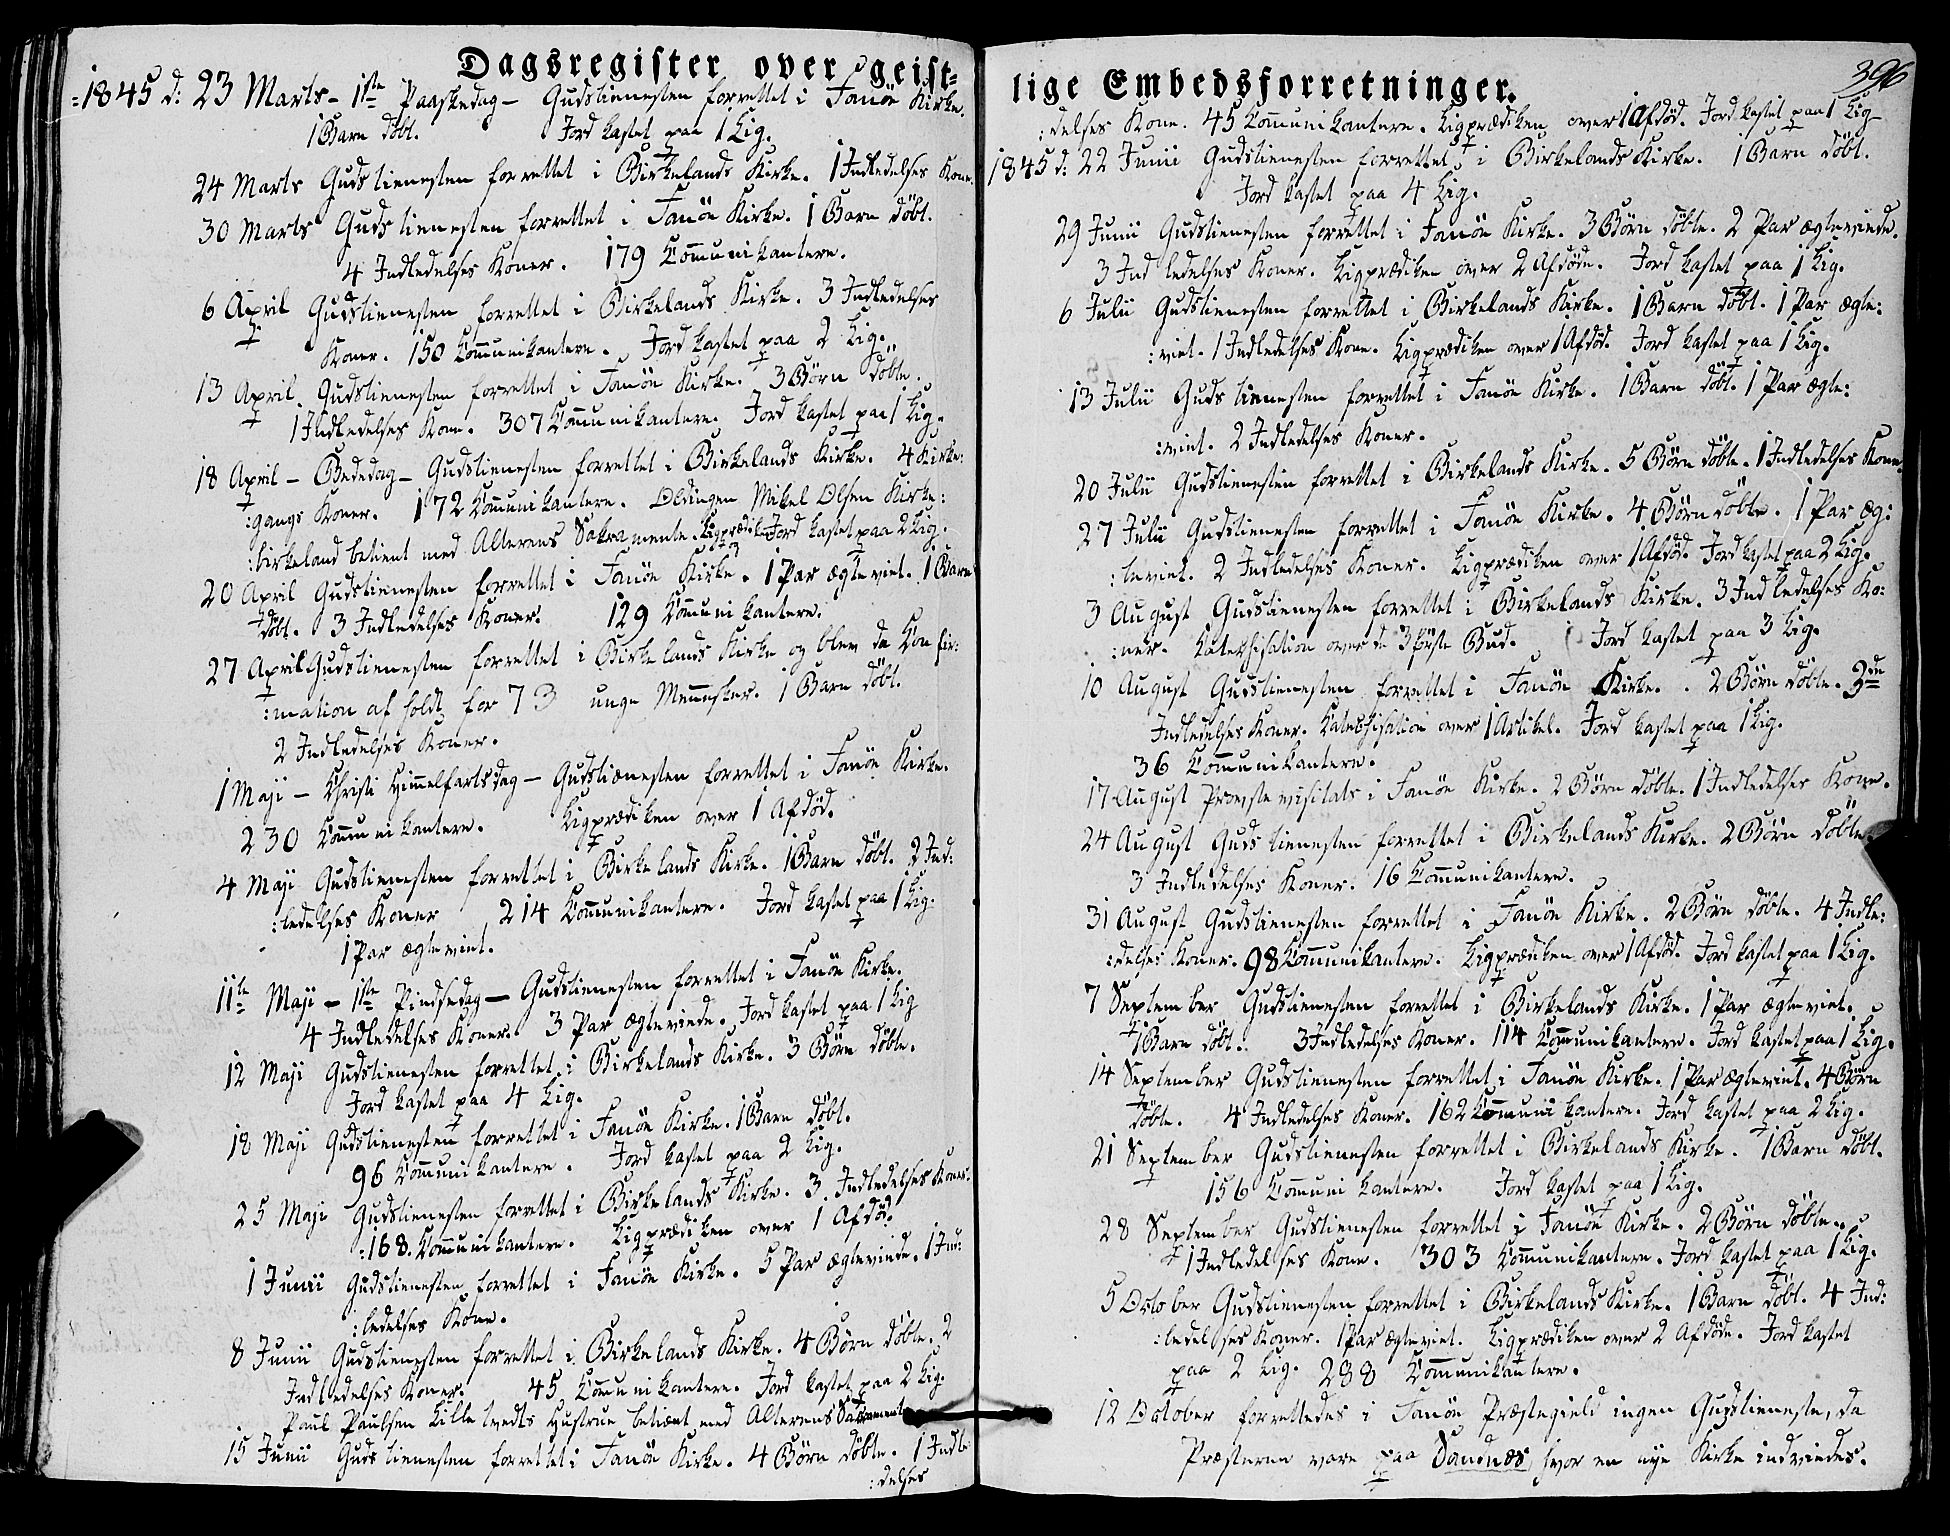 Dagsregister over geist-
:1845 d: 23 Marts - 1ste Paaskedag - Gudstienesten forrettet i Fanöe Kirke.
1 Barn döbt. Jord kastet paa 1 Lig.
24 Marts Gudstienesten forrettet i Birkelands Kirke. 1 Indledelses Kone.
30 Marts Gudstienesten forrettet i Fanöe Kirke. 1 Barn döbt.
4 Indledelses Koner. 179 Com̅unikantere.
6 April Gudstienesten forrettet i Birkelands Kirke. 3 Indledelses
Koner. 150 Com̅unikantere. Jord kastet paa 2 Lig.
13 April. Gudstienesten forrettet i Fanöe Kirke. 3 Börn döbte.
1 Indledelses Kone. 307 Com̅unikantere. Jord kastet paa 1 Lig.
18 April - Bededag - Gudstienesten forrettet i Birkelands Kirke. 4 Kirke:
:gangs Koner. 172 Com̅unikantere. Oldingen Mikel Olsen Kirke:
:birkeland betient med Alterens Sakramente. Jord kastet paa 2 Lig.
20 April Gudstienesten forrettet i Fanöe Kirke. 1 Par ægteviet. 1 Barn
döbt. 3 Indledelses Koner. 129 Com̅unikantere.
27 April Gudstienesten forrettet i Birkelands Kirke og blev da Confir:
:mation afholdt for 73 unge Men̅esker. 1 Barn döbt.
2 Indledelses Koner.
1 Maji - Christi Him̅elfartsdag - Gudstienesten forrettet i Fanöe Kirke.
230 Com̅unikantere. Ligprædiken over 1 Afdød.
4 Maji Gudstienesten forrettet i Birkelands Kirke. 1 Barn döbt. 2 Ind:
:ledelses Koner 214 Com̅unikantere. Jord kastet paa 1 Lig.
1 Par ægteviet.
11te Maji - 1ste Pindsedag - Gudstienesten forrettet i Fanöe Kirke.
4 Indledelses Koner. 3 Par ægteviede. Jord kastet paa 1 Lig
12 Maji Gudstienesten forrettet i Birkelands Kirke. 3 Börn döbte.
Jord kastet paa 4 Lig.
18 Maji Gudstienesten forrettet i Fanöe Kirke. 1 Barn döbt.
96 Com̅unikantere. Jord kastet paa 2 Lig.
25 Maji Gudstienesten forrettet i Birkelands Kirke. 3 Indledelses Koner.
:168 Com̅unikantere. Ligprædiken over 1 Afdød.
1 Junii Gudstienesten forrettet i Fanöe Kirke. 5 Par ægteviede. 1 Ind:
:ledelses Kone.
8 Junii Gudstienesten forrettet i Birkelands Kirke. 4 Börn döbte. 2
Indledelses Koner. 45 Com̅unikantere. Jord kastet paa 2 Lig.
Paul Paulsen Lilletvedts Hustrue betient med Alterens Sacramente
15 Junii Gudstienesten forrettet i Fanöe Kirke. 4 Börn döbte. 1 Indle
:delses
lige Embedsforretninger.
396
:delses Kone. 45 Com̅unikantere. Ligprædiken over 1 Afdød. Jord kastet paa 1 Lig
1845 d: 22 Junii Gudstienesten forrettet i Birkelands Kirke. 1 Barn döbt.
Jord kastet paa 4 Lig.
29 Junii Gudstienesten forrettet i Fanöe Kirke. 3 Börn döbte. 2 Par ægteviede.
3 Indledelses Koner. Ligprædiken over 2 Afdøde. Jord kastet paa 1 Lig.
6 Julii Gudstienesten forrettet i Birkelands Kirke. 1 Barn döbt. 1 Par ægte:
:viet. 1 Indledelses Kone. Ligprædiken over 1 Afdød. Jord kastet paa 1 Lig.
13 Julii Gudstienesten forrettet i Fanöe Kirke. 1 Barn döbt. 1 Par ægte:
:viet. 2 Indledelses Koner.
20 Julii Gudstienesten forrettet i Birkelands Kirke. 5 Börn döbte. 1 Indledelses Kone.
27 Julii Gudstienesten forrettet i Fanöe Kirke. 4 Börn döbte. 1 Par æg:
:teviet. 2 Indledelses Koner. Ligprædiken over 1 Afdød. Jord kastet paa 2 Lig.
3 August Gudstienesten forrettet i Birkelands Kirke. 3 Indledelses Ko:
:ner. Katechisation over de 3 første Bud. Jord kastet paa 3 Lig.
10 August Gudstienesten forrettet i Fanöe Kirke. 2 Börn döbte. 3de
Indledelses Koner. Katechisation over 1 Artikel. Jord kastet paa 1 Lig.
36 Com̅unikantere.
17 August Provstevisitats i Fanöe Kirke. 2 Börn döbte. 1 Indledelses Kone.
24 August Gudstienesten forrettet i Birkelands Kirke. 2 Börn döbte.
3 Indledelses Koner. 16 Com̅unikantere.
31 August Gudstienesten forrettet i Fanöe Kirke. 2 Börn döbte. 4 Indle:
:delses Koner. 98 Com̅unikantere. Ligprædiken over 1 Afdød. Jord kastet paa 1 Lig.
7 September Gudstienesten forrettet i Birkelands Kirke. 1 Par ægteviet.
1 Barn döbt. 3 Indledelses Koner. 114 Com̅unikantere. Jord kastet paa 1 Lig.
14 September Gudstienesten forrettet i Fanöe Kirke. 1 Par ægteviet. 4 Börn
döbte. 4 Indledelses Koner. 162 Com̅unikantere. Jord kastet paa 2 Lig.
21 September Gudstienesten forrettet i Birkelands Kirke. 1 Barn döbt.
156 Com̅unikantere. Jord kastet paa 1 Lig.
28 September Gudstienesten forrettet i Fanöe Kirke. 2 Börn döbte.
1 Indledelses Kone. 303 Com̅unikantere. Jord kastet paa 1 Lig.
5 October Gudstienesten forrettet i Birkelands Kirke. 1 Barn döbt. 4 Ind:
:ledelses Koner. 1 Par ægteviet. Ligprædiken over 2 Afdøde. Jord kastet
paa 2 Lig. 288 Com̅unikantere.
12 October forrettedes i Fanöe Præstegield ingen Gudstieneste, da
Præsterne vare paa Sandnæs, hvor en nye Kirke indviedes.